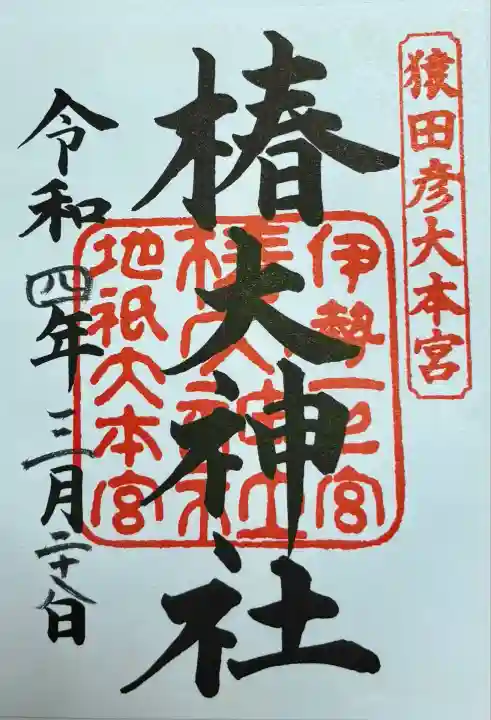 猿田彦大本宮
伊勢一之宮
椿大神社
地祇大本宮
椿大神社
令和四年三月二十八日